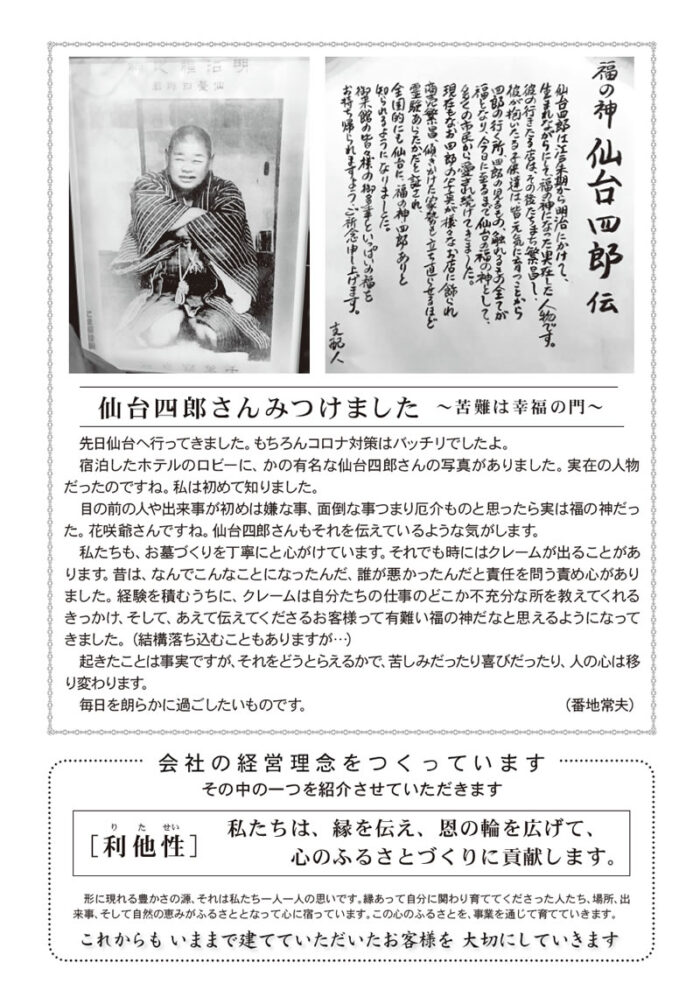 明治
仙臺四郎君
福の神 仙台四郎 伝
仙台四郎は江戸末期から明治にかけて、
生まれながらにして福の神になった実在した人物です。
彼の行きたる店は、その後たちまち繁昌し、
彼が抱いたる子供達は、皆元気に育つことから
四郎の行く所、四郎の見るもの、触れるもの全てが
福となり、今日に至るまで仙台の福の神として、
多くの市民から愛され続けてきました。
現在もなお四郎の写真が様々なお店に飾られ
商売繁昌、傾きかけた家勢も立ち直らせるほど
霊験あらたかだと証され
全国的にも仙台に、福の神四郎ありと
知られるようになりました。
御来館の皆々様の御多幸といっぱいの福を
お持ち帰られますようご祈念申し上げます。
支配人
仙台四郎さんみつけました ～苦難は幸福の門～
先日仙台へ行ってきました。もちろんコロナ対策はバッチリでしたよ。
宿泊したホテルのロビーに、かの有名な仙台四郎さんの写真がありました。実在の人物
だったのですね。私は初めて知りました。
目の前の人や出来事が初めは嫌な事、面倒な事つまり厄介ものと思ったら実は福の神だっ
た。花咲爺さんですね。仙台四郎さんもそれを伝えているような気がします。
私たちも、お墓づくりを丁寧にと心がけています。それでも時にはクレームが出ることがあ
ります。昔は、なんでこんなことになったんだ、誰が悪かったんだと責任を問う責め心があり
ました。経験を積むうちに、クレームは自分たちの仕事のどこか不充分な所を教えてくれる
きっかけ、そして、あえて伝えてくださるお客様って有難い福の神だなと思えるようになって
きました。（結構落ち込むこともありますが…）
起きたことは事実ですが、それをどうとらえるかで、苦しみだったり喜びだったり、人の心は移
り変わります。
毎日を朗らかに過ごしたいものです。 （番地常夫）
会社の経営理念をつくっています
その中の一つを紹介させていただきます
りたせい
［利他性］
私たちは、縁を伝え、恩の輪を広げて、
心のふるさとづくりに貢献します。
形に現れる豊かさの源、それは私たち一人一人の思いです。縁あって自分に関わり育ててくださった人たち、場所、出
来事、そして自然の恵みがふるさととなって心に宿っています。この心のふるさとを、事業を通じて育てていきます。
これからも いままで建てていただいたお客様を 大切にしていきます